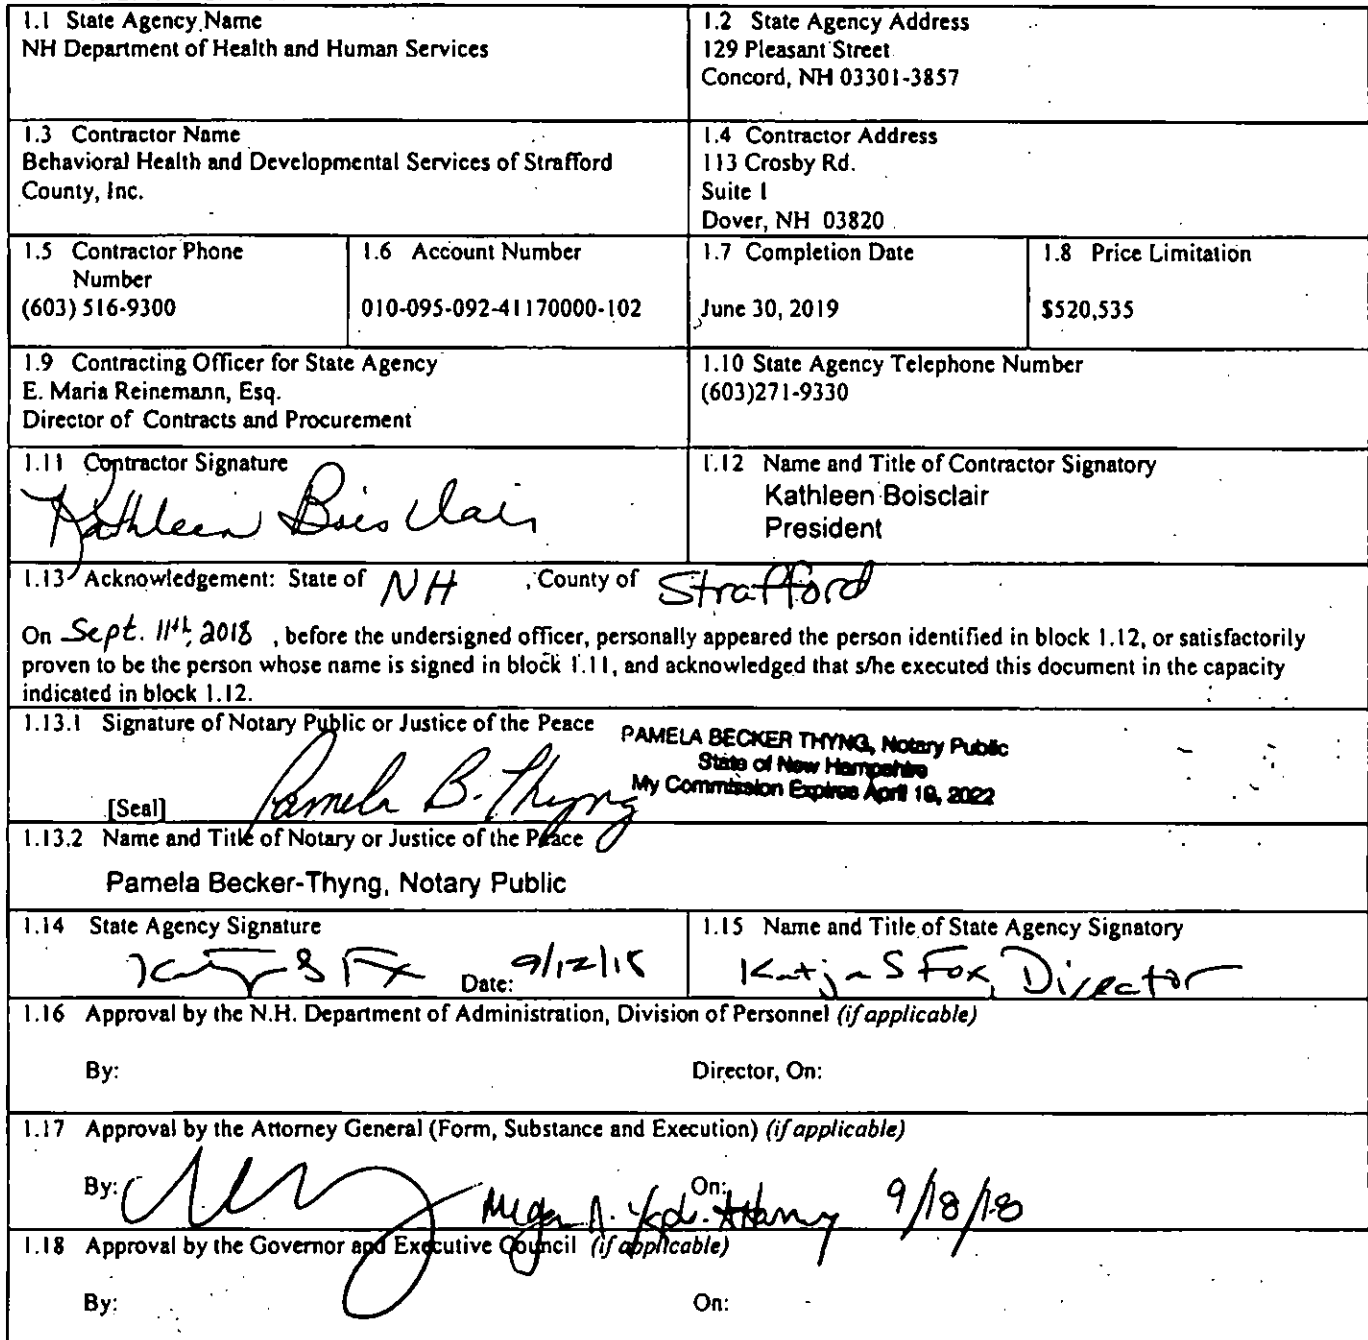 1.1 State Agency Name
NH Department of Health and Human Services
1.2 State Agency Address
129 Pleasant Street
Concord, NH 03301-3857
1.3 Contractor Name
Behavioral Health and Developmental Services of Strafford
County, Inc.
1.4 Contractor Address
113 Crosby Rd.
Suite 1
Dover, NH 03820
1.5 Contractor Phone
Number
(603) 516-9300
1.6 Account Number
010-095-092-41170000-102
1.7 Completion Date
June 30, 2019
1.8 Price Limitation
$520,535
1.9 Contracting Officer for State Agency
E. Maria Reinemann, Esq.
Director of Contracts and Procurement
1.10 State Agency Telephone Number
(603)271-9330
1.11 Contractor Signature
Kathleen Boisclair
1.12 Name and Title of Contractor Signatory
Kathleen Boisclair
President
1.13 Acknowledgement: State of NH , County of Strafford
On Sept. 11th, 2018 , before the undersigned officer, personally appeared the person identified in block 1.12, or satisfactorily
proven to be the person whose name is signed in block 1.11, and acknowledged that s/he executed this document in the capacity
indicated in block 1.12.
1.13.1 Signature of Notary Public or Justice of the Peace
PAMELA BECKER THYNG, Notary Public
State of New Hampshire
My Commission Expires April 19, 2022
[Seal] Pamela B. Thyng
1.13.2 Name and Title of Notary or Justice of the Peace
Pamela Becker-Thyng, Notary Public
1.14 State Agency Signature
Date: 9/12/18
1.15 Name and Title of State Agency Signatory
Katja S Fox, Director
1.16 Approval by the N.H. Department of Administration, Division of Personnel (if applicable)
By: Director, On:
1.17 Approval by the Attorney General (Form, Substance and Execution) (if applicable)
By: On: 9/18/18
1.18 Approval by the Governor and Executive Council (if applicable)
By: On: